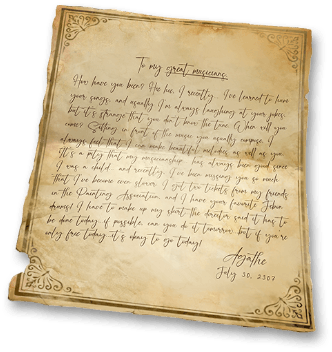 To my great musicians,
How have you been? Me too, I recently I've learned to love
your songs, and usually I'm always laughing at your jokes,
but it's strange that you don't have the time. When will you
come? Sitting in front of the music you usually compose, I
always feel that I can make beautiful melodies as well as you.
It's a pity that my musicianship has always been good since
I was a child, and recently, I've been missing you so much
that I've become even slower. I got two tickets from my friends
in the Painting Association, and I have your favorite
drama! I have to make up my short, the director said it has to
be done today if possible, can you do it tomorrow but if you're
only free today, it's okay to go today!
Agathe
July 30, 2307